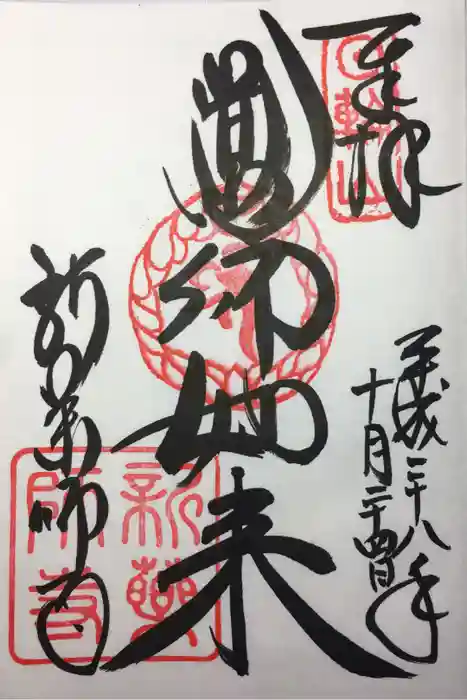 奉拝
平成二十八年
十月二十四日
薬師如来
新薬師寺
日輪山
新薬師寺